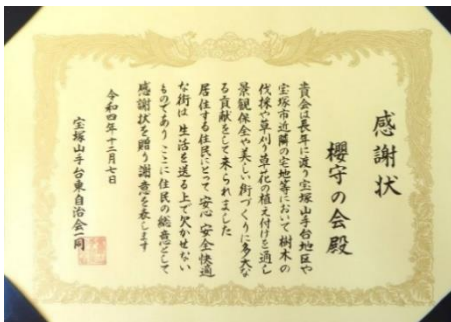 感謝状
櫻守の会殿
貴会は長年に渡り宝塚山手台地区や
宝塚市近隣の宅地等において樹木の
伐採や草刈り草花の植え付けを通し
景観保全や美しい街づくりに多大な
る貢献をして来られました
居住する住民にとって安心安全快適
な街は生活を送る上で欠かせない
ものであり ここに住民の総意として
感謝状を贈り謝意を表します
令和四年十二月七日
宝塚山手台東自治会一同